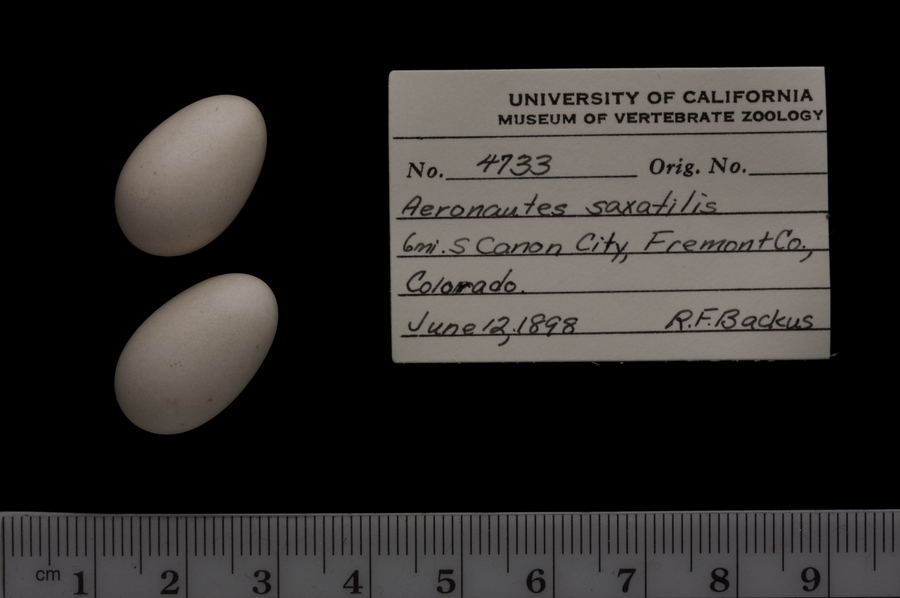 UNIVERSITY OF CALIFORNIA
MUSEUM OF VERTEBRATE ZOOLOGY
No. 4733 Orig. No.
Aeronautes saxatilis
6mi. S Canon City, Fremont Co.,
Colorado.
June 12, 1898 R.F. Backus
cm 1 2 3 4 5 6 7 8 9